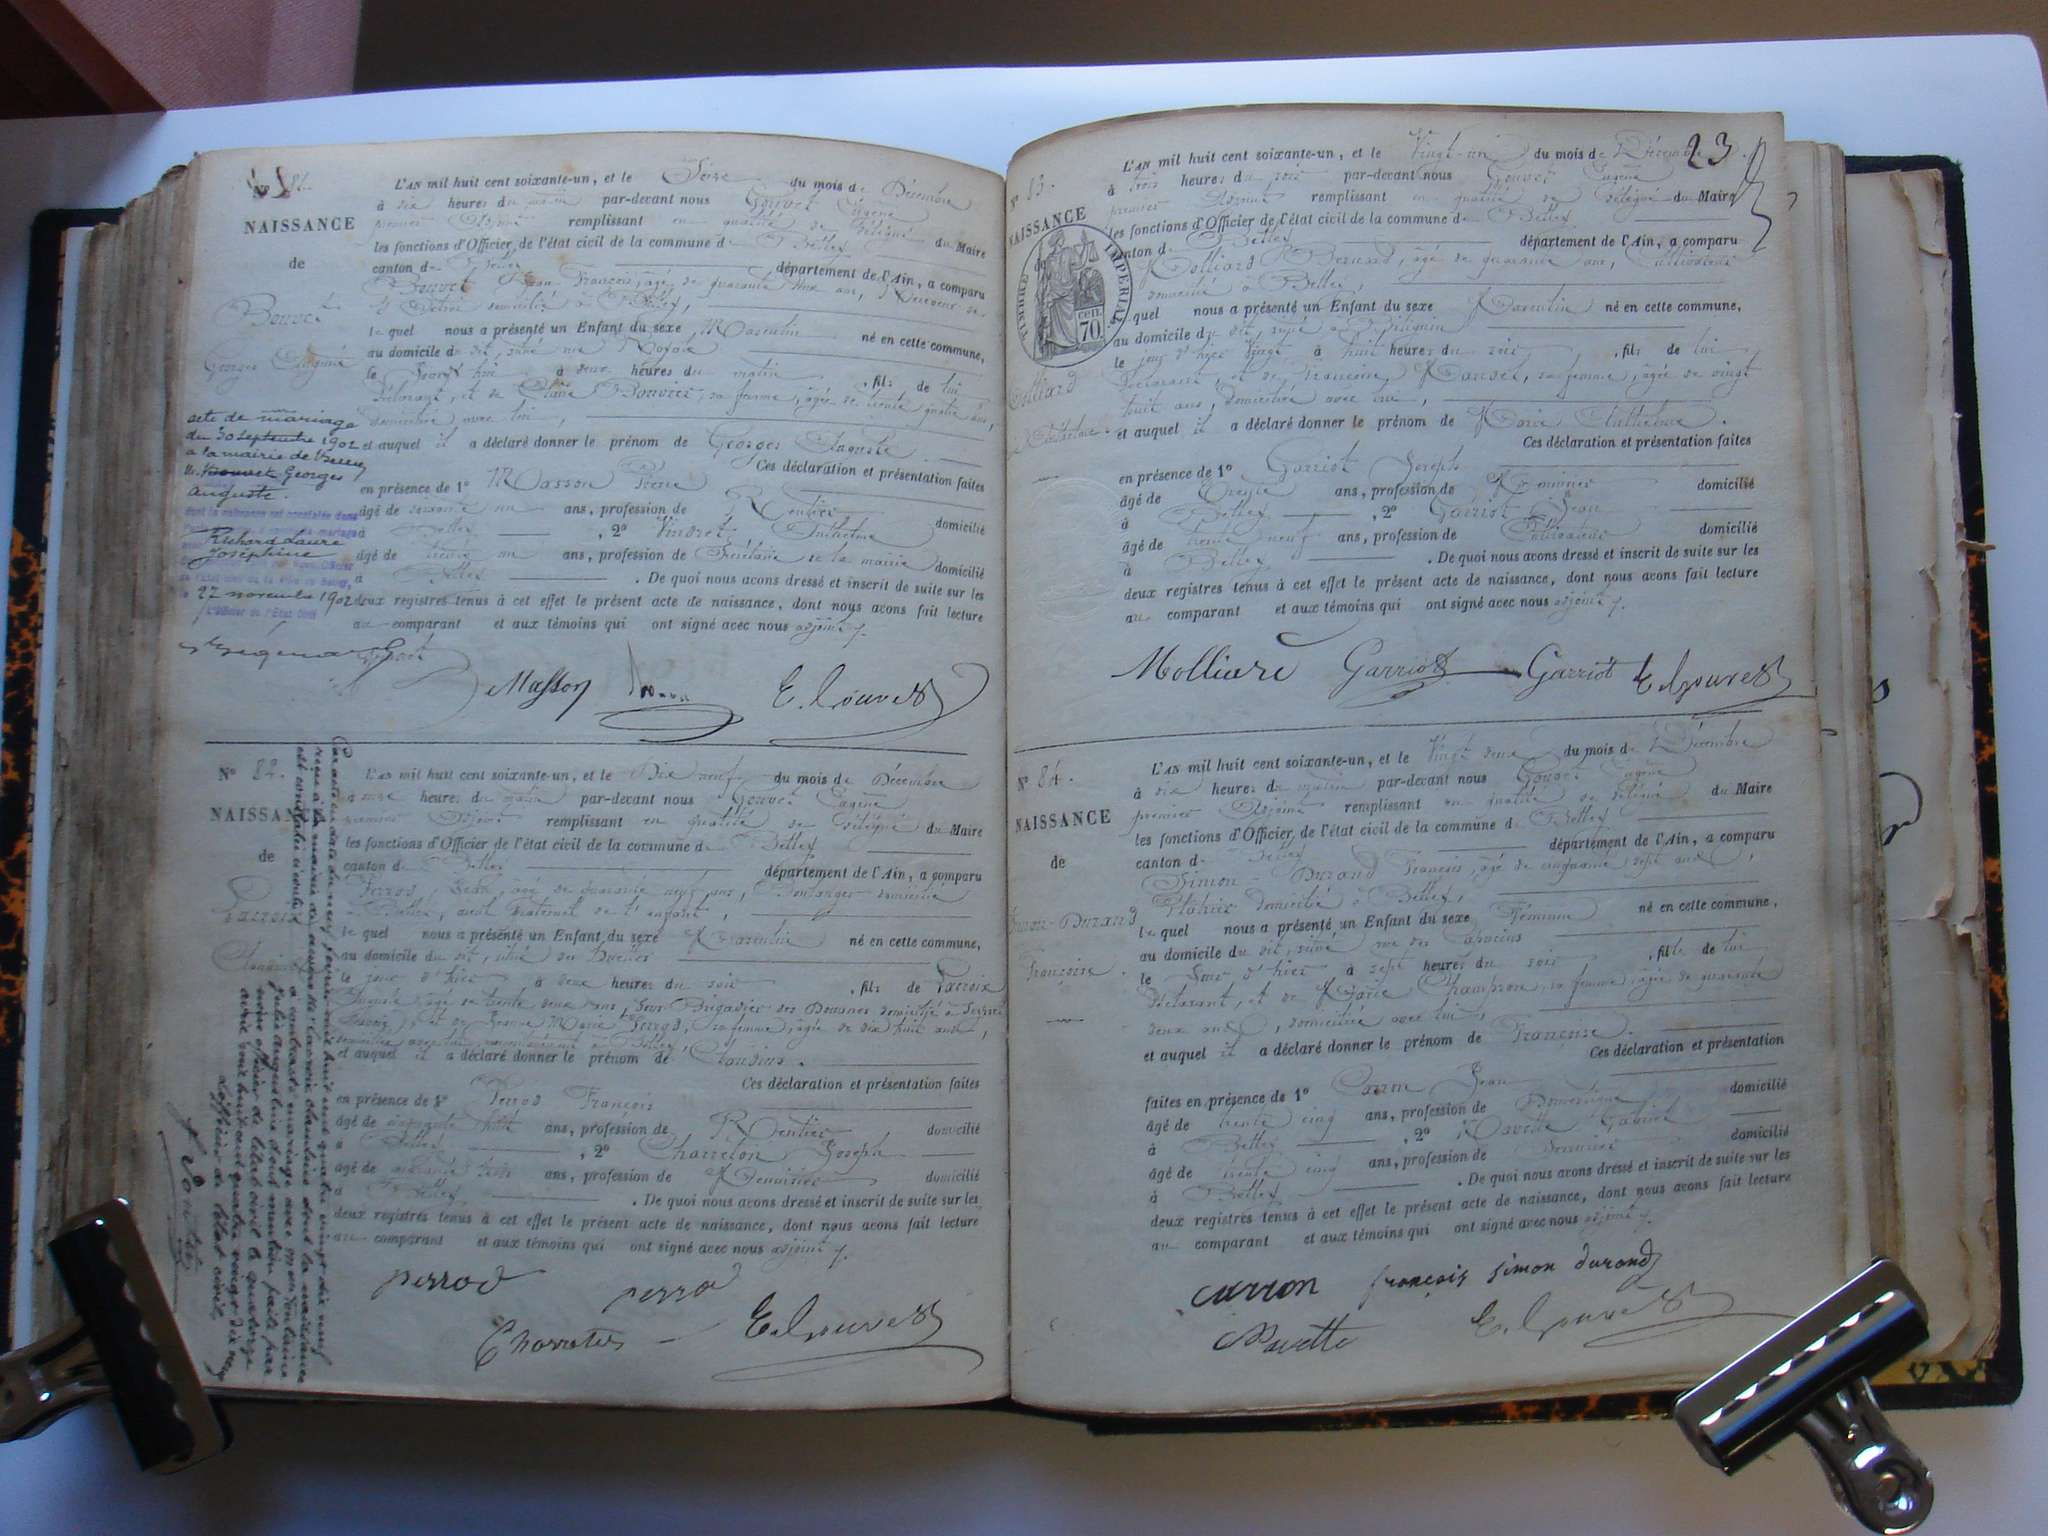 81.
NAISSANCE
de
Bouvet
Georges Auguste
L'AN mil huit cent soixante-un, et le Seize du mois de Décembre
à dix heures du matin par-devant nous Gouvet Eugène
premier Adjoint remplissant en qualité de délégué du Maire
les fonctions d'Officier de l'état civil de la commune de Belley
canton de Belley département de l'Ain, a comparu
Bouvet Jean François, âgé de quarante deux ans, Receveur
domicilié à Belley,
lequel nous a présenté un Enfant du sexe Masculin né en cette commune,
au domicile du dit, situé rue Royale
le jour d'hui à deux heures du matin, fils de lui
déclarant, et de Claire Bouvier, sa femme, âgée de trente quatre ans,
domiciliée avec lui,
et auquel il a déclaré donner le prénom de Georges Auguste.
Ces déclaration et présentation faites
en présence de 1° Masson Pierre
âgé de soixante un ans, profession de Rentier domicilié
à Belley, 2° Vindret Anthelme
âgé de trente un ans, profession de Secrétaire de la mairie domicilié
à Belley. De quoi nous avons dressé et inscrit de suite sur les
deux registres tenus à cet effet le présent acte de naissance, dont nous avons fait lecture
au comparant et aux témoins qui ont signé avec nous adjoint
acte de mariage
du 30 septembre 1902
a la mairie de Belley
Georges
auguste.
Richard Laure
Joséphine
27 novembre 1902
L'Officier de l'Etat civil
Masson E. Gouvet
N° 82.
NAISSANCE
de
Lacroix
Claudius
L'AN mil huit cent soixante-un, et le Dix neuf du mois de Décembre
à onze heures du matin par-devant nous Gouvet Eugène
premier Adjoint remplissant en qualité de délégué du Maire
les fonctions d'Officier de l'état civil de la commune de Belley
canton de Belley département de l'Ain, a comparu
Perrod, Jean, âgé de quarante neuf ans, Boulanger domicilié
à Belley, aïeul Maternel de l'enfant,
lequel nous a présenté un Enfant du sexe Masculin né en cette commune,
au domicile du dit, situé des Buelles
le jour d'hier à deux heures du soir, fils de Lacroix
Auguste, âgé de trente deux ans, Sous Brigadier des Douanes domicilié à
et de Jeanne Marie Perrod, sa femme, âgée de dix huit ans,
et auquel il a déclaré donner le prénom de Claudius.
Ces déclaration et présentation faites
en présence de 1° Perrod François
âgé de ans, profession de Rentier domicilié
à Belley, 2° Charreton Joseph
âgé de quarante trois ans, profession de Menuisier domicilié
à Belley. De quoi nous avons dressé et inscrit de suite sur les
deux registres tenus à cet effet le présent acte de naissance, dont nous avons fait lecture
au comparant et aux témoins qui ont signé avec nous adjoint
Par acte en date du neuf février mil huit cent quatre vingt dix neuf
reçu à la mairie de Lacroix claudius dont la naissance
est constatée ci contre a contracté mariage avec
Julie augustine dont mention faite par
nous officier de l'état civil le quatorze
avril mil huit cent quatre vingt dix neuf
L'officier de l'état civil,
perrod perrod
Charreton E. Gouvet
23
N° 83.
NAISSANCE
de
TIMBRE IMPERIAL
70 cen.
Molliard
Anthelme
L'AN mil huit cent soixante-un, et le Vingt-un du mois de Décembre
à trois heures du soir par-devant nous Gouvet Eugène
premier Adjoint remplissant en qualité de délégué du Maire
les fonctions d'Officier de l'état civil de la commune de Belley
canton de Belley département de l'Ain, a comparu
Molliard Bernard, âgé de quarante ans, Cultivateur
domicilié à Belley,
lequel nous a présenté un Enfant du sexe Masculin né en cette commune,
au domicile du dit, situé
le jour d'hier Vingt à huit heures du soir, fils de lui
déclarant, et de Françoise, sa femme, âgée de vingt
huit ans, domiciliée avec lui,
et auquel il a déclaré donner le prénom de Anthelme.
Ces déclaration et présentation faites
en présence de 1° Garriot Joseph
âgé de Trente ans, profession de domicilié
à Belley, 2° Garriot Jean
âgé de trente neuf ans, profession de Cultivateur domicilié
à Belley. De quoi nous avons dressé et inscrit de suite sur les
deux registres tenus à cet effet le présent acte de naissance, dont nous avons fait lecture
au comparant et aux témoins qui ont signé avec nous adjoint
Molliard Garriot Garriot E. Gouvet
N° 84.
NAISSANCE
de
Simon-Durand
Françoise
L'AN mil huit cent soixante-un, et le Vingt deux du mois de Décembre
à dix heures du matin par-devant nous Gouvet Eugène
premier Adjoint remplissant en qualité de délégué du Maire
les fonctions d'Officier de l'état civil de la commune de Belley
canton de Belley département de l'Ain, a comparu
Simon-Durand François, âgé de cinquante sept ans,
Plâtrier domicilié à Belley,
lequel nous a présenté un Enfant du sexe Féminin né en cette commune,
au domicile du dit, situé rue des Capucins
le Jour d'hier à sept heures du soir, fille de lui
déclarant, et de Marie Champion, sa femme, âgée de quarante
deux ans, domiciliée avec lui,
et auquel il a déclaré donner le prénom de Françoise.
Ces déclaration et présentation
faites en présence de 1° Carron Jean
âgé de trente cinq ans, profession de Domestique domicilié
à Belley, 2° Navette Gabriel
âgé de trente cinq ans, profession de domicilié
à Belley. De quoi nous avons dressé et inscrit de suite sur les
deux registres tenus à cet effet le présent acte de naissance, dont nous avons fait lecture
au comparant et aux témoins qui ont signé avec nous adjoint
carron françois simon durand
Navette E. Gouvet